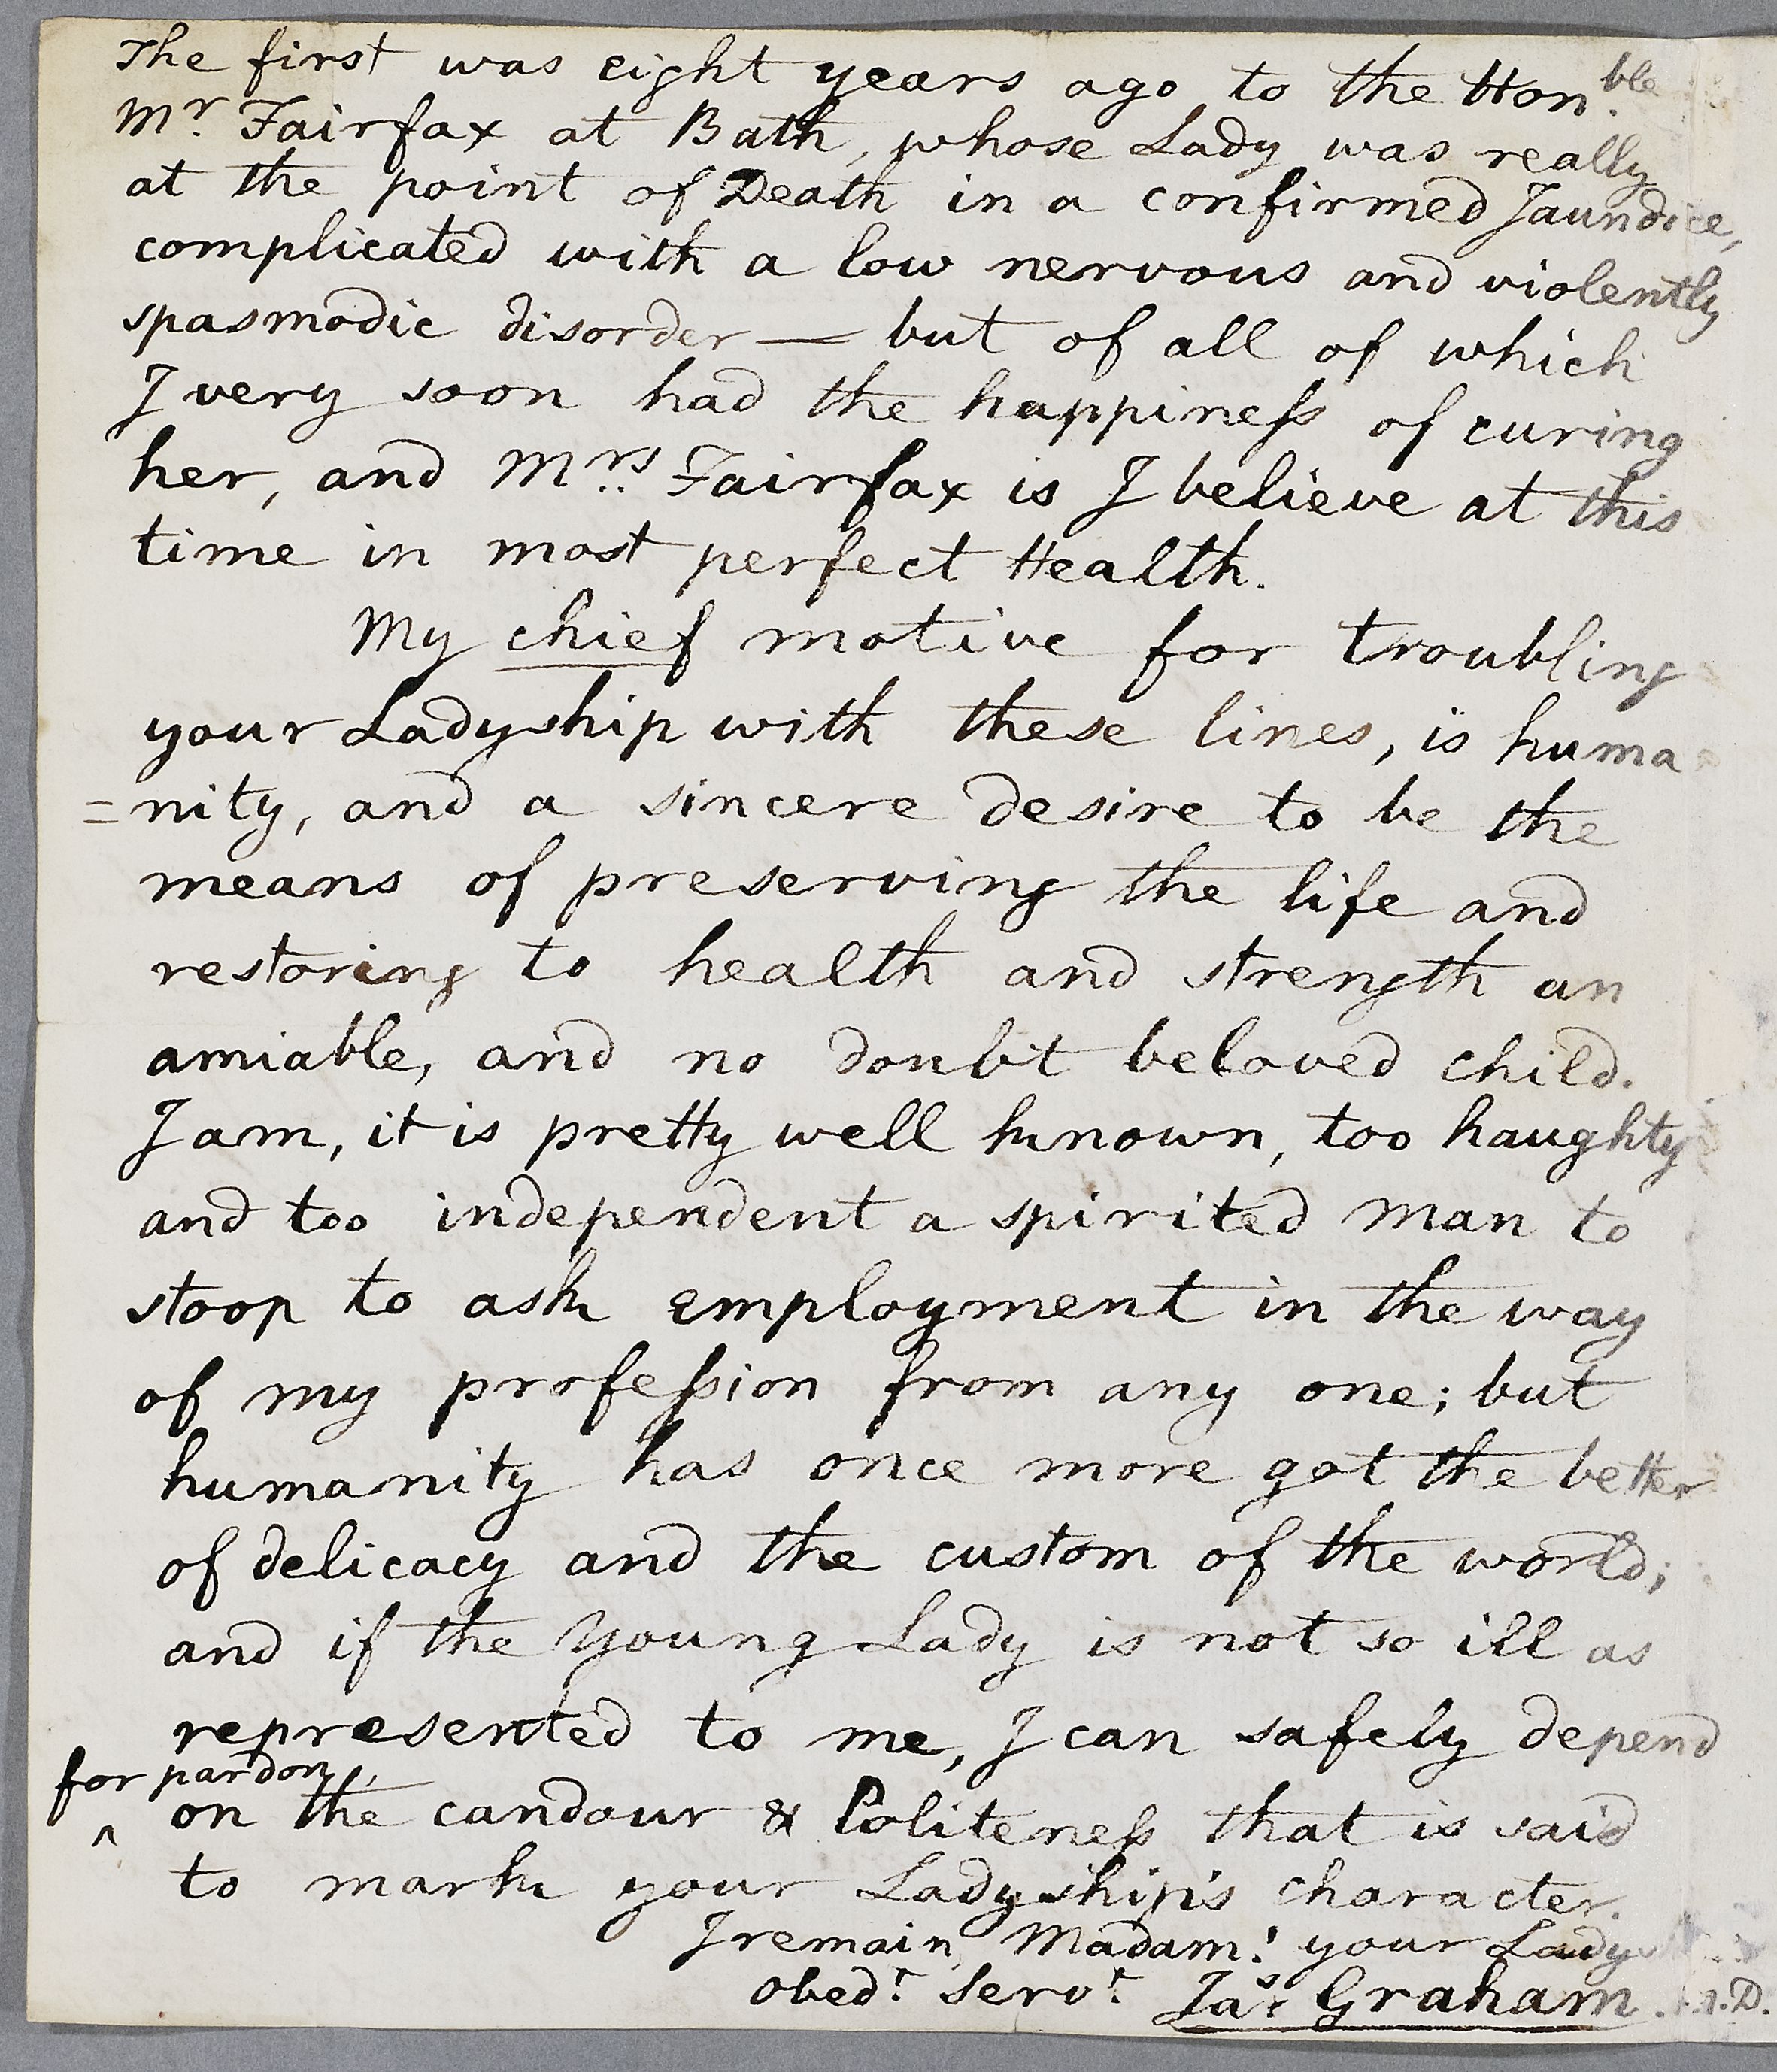 The first was eight years ago to the Hon.ble
Mr. Fairfax at Bath, whose Lady was really
at the point of Death in a confirmed Jaundice,
complicated with a low nervous and violently
spasmodic disorder — but of all of which
I very soon had the happineſs of curing
her, and Mrs. Fairfax is I believe at this
time in most perfect Health.
My chief motive for troubling
your Ladyship with these lines, is huma
=nity, and a sincere desire to be the
means of preserving the life and
restoring to health and strength an
amiable, and no doubt beloved child.
I am, it is pretty well known, too haughty
and too independent a spirited man to
stoop to ask employment in the way
of my profeſsion from any one; but
humanity has once more got the better
of delicacy and the custom of the world;
and if the Young Lady is not so ill as
represented to me, I can safely depend
for pardon,
^ on the candour & Politeneſs that is said
to mark your Ladyship's character.
I remain, Madam! your Lady
obedt. servt. Jas. Graham. M.D.